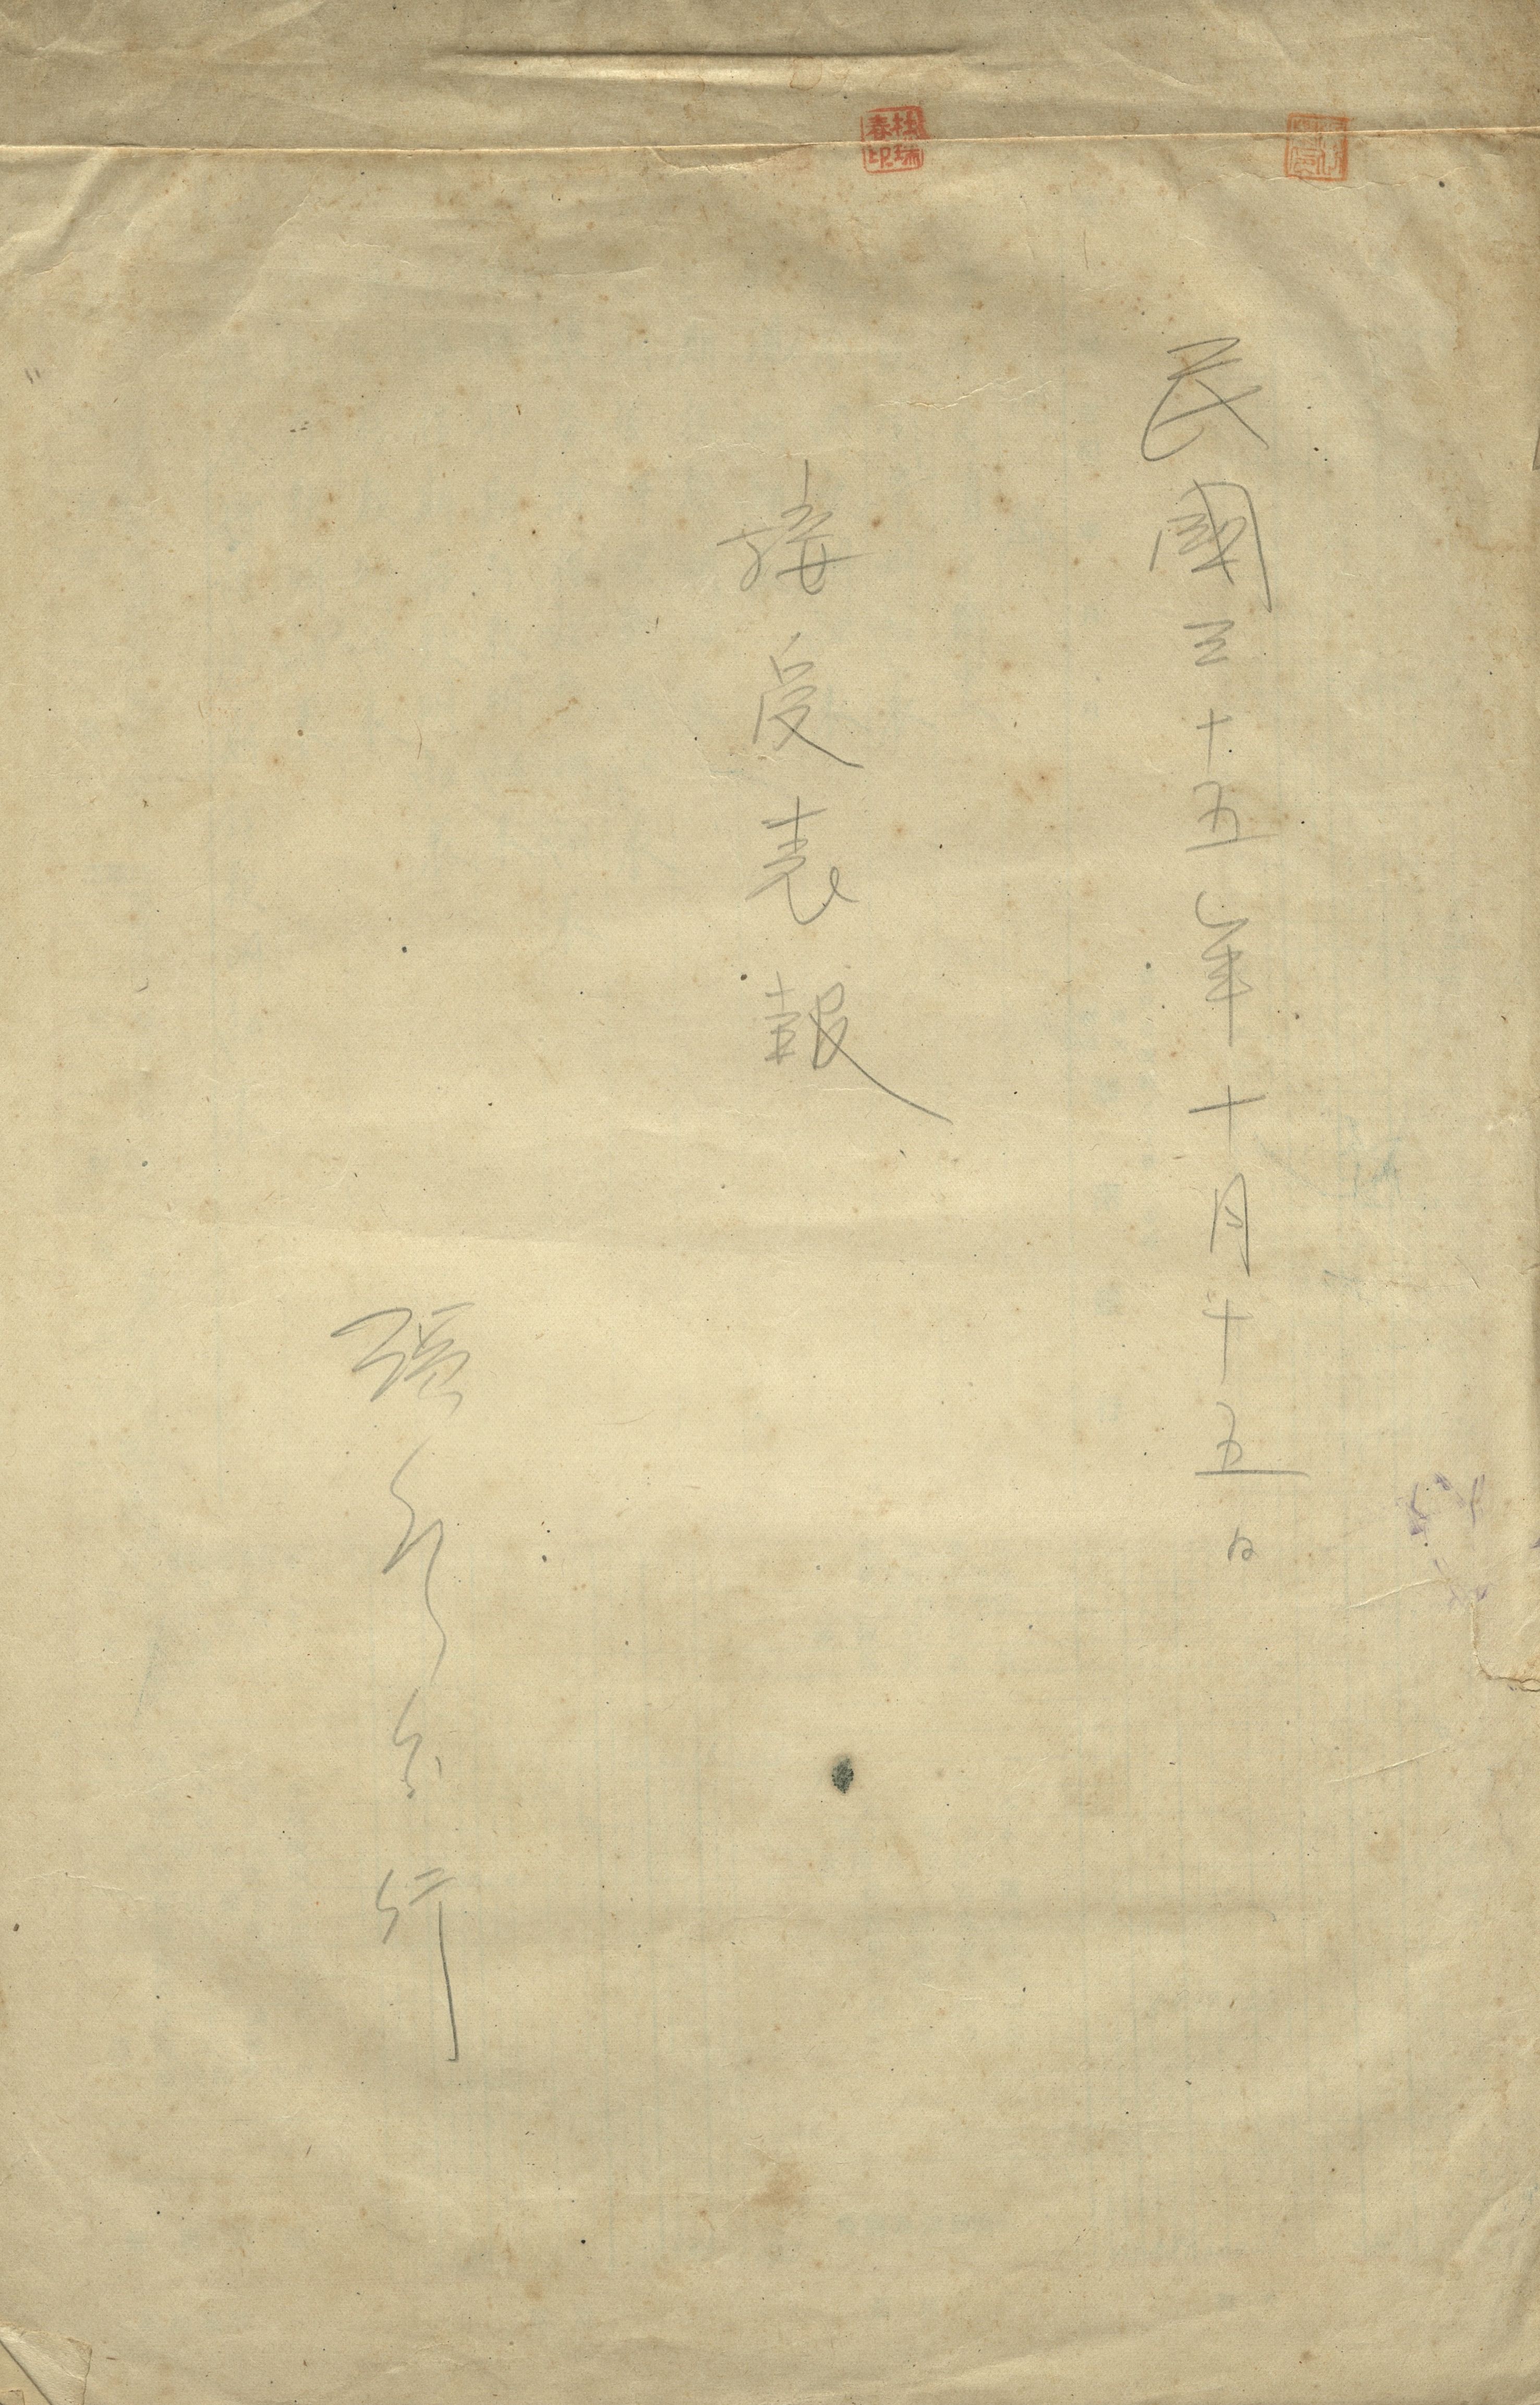 民國三十五年十月十五日
接受表報
張
行
杜瑞春印